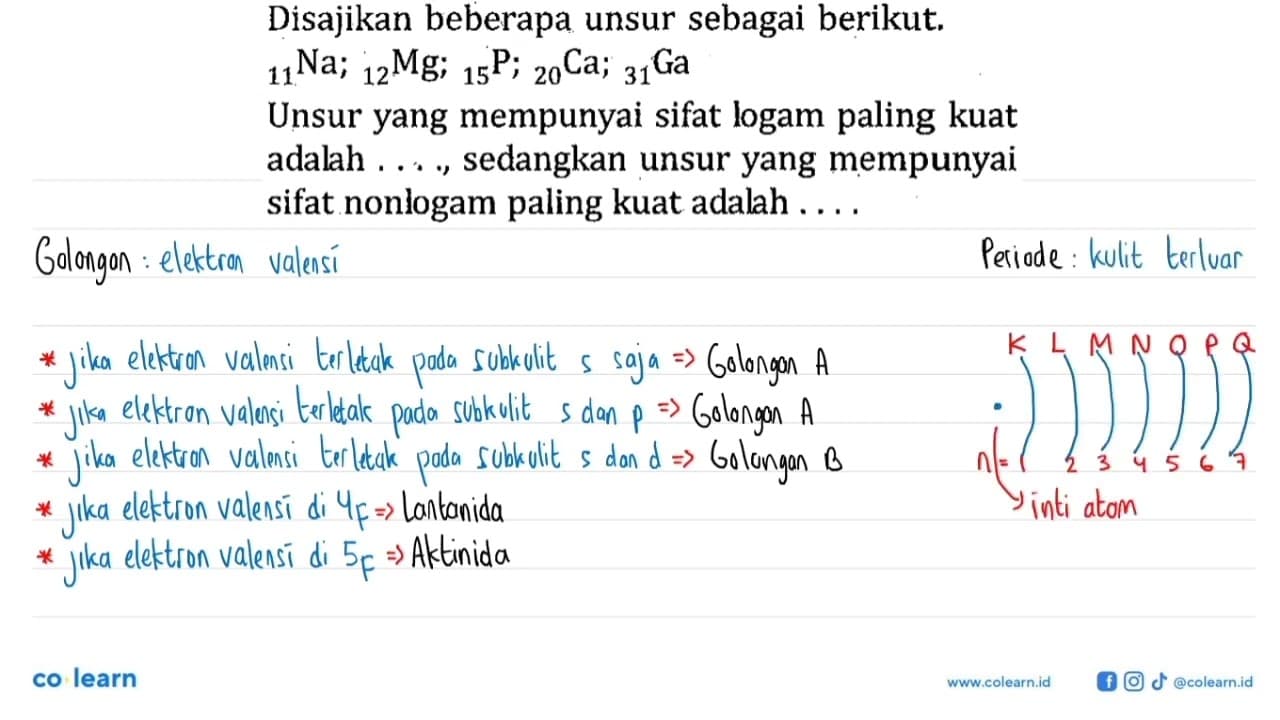 Disajikan beberapa unsur sebagai berikut.
₁₁Na; ₁₂Mg; ₁₅P; ₂₀Ca; ₃₁Ga
Unsur yang mempunyai sifat logam paling kuat
adalah . . . ., sedangkan unsur yang mempunyai
sifat nonlogam paling kuat adalah . . . .
Golongan : elektron valensi
Periode : kulit terluar
* jika elektron valensi terletak pada subkulit s saja => Golongan A
* jika elektron valensi terletak pada subkulit s dan p => Golongan A
* jika elektron valensi terletak pada subkulit s dan d => Golongan B
* jika elektron valensi di 4F => Lantanida
* jika elektron valensi di 5F => Aktinida
K L M N O P Q
n = 1 2 3 4 5 6 7
inti atom
co learn
www.colearn.id
@colearn.id